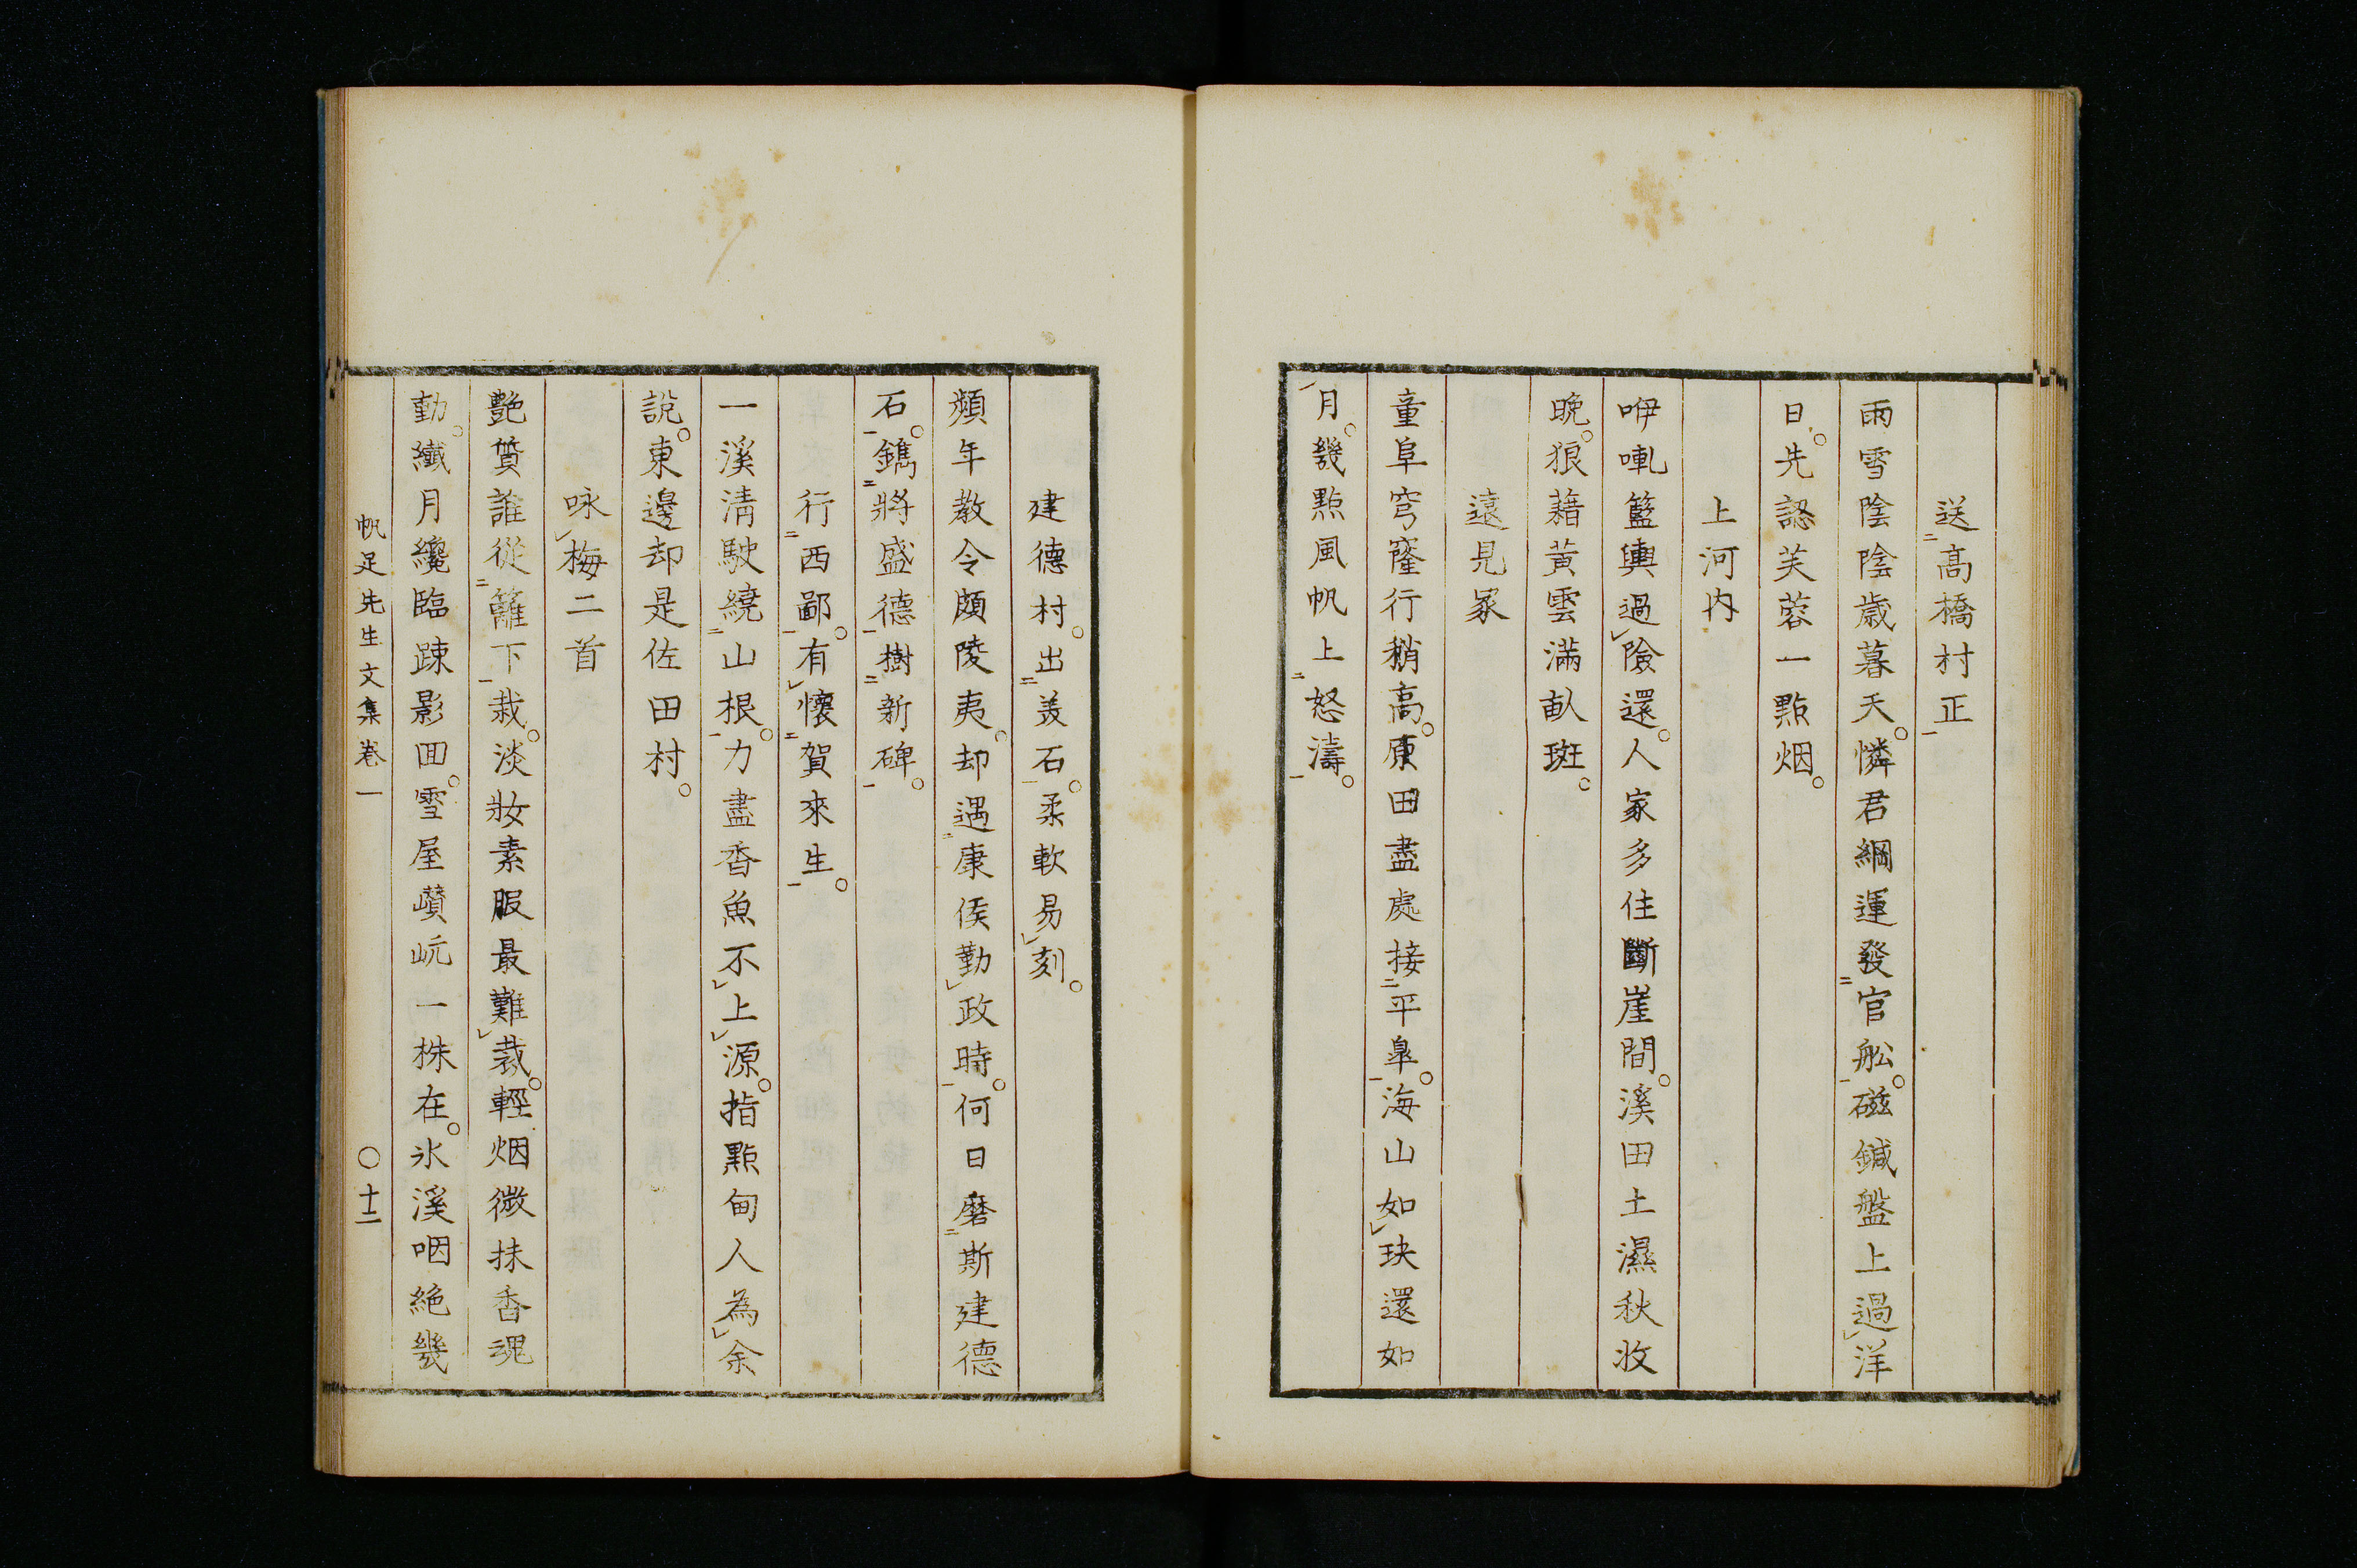 送高橋村正
雨雪陰陰歲暮天。憐君綱運發官舩。磁鍼盤上過洋
日。先認芙蓉一點烟。
上河内
咿喇籃輿過險還。人家多住斷崖間。溪田土濕秋收
晚。狼藉黃雲滿畝斑。
遠見冢
童阜穹窿行稍高。原田盡處接平皐。海山如玦還如
月。幾點風帆上怒濤。
建德村。出美石。柔軟易刻。
頻年教令頗陵夷。却遇康侯勤政時。何日磨斯建德
石。鐫將盛德樹新碑。
行西鄙。有懷賀來生。
一溪淸駛繞山根。力盡香魚不上源。指點甸人為余
說。東邊却是佐田村。
咏梅二首
艷質誰從籬下栽。淡妝素服最難裁。輕烟微抹香魂
動。纖月纔臨踈影回。雪屋巑岏一株在。氷溪咽絕幾
帆足先生文集卷一 〇十二